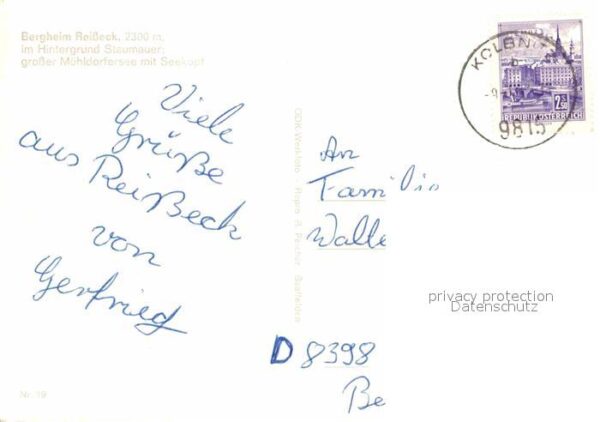 Bergheim Reißeck, 2300 m,
im Hintergrund Staumauer:
großer Mühldorfersee mit Seekopf
Viele
Grüße
aus Reißeck
von
Gerfried
Nr. 19
ÖDK-Werkfoto - Repro R. Peschta Seefelden
KOLBNITZ
9815
2.50
REPUBLIK ÖSTERREICH
An
Familie
Walle
privacy protection
Datenschutz
D 8398
Be